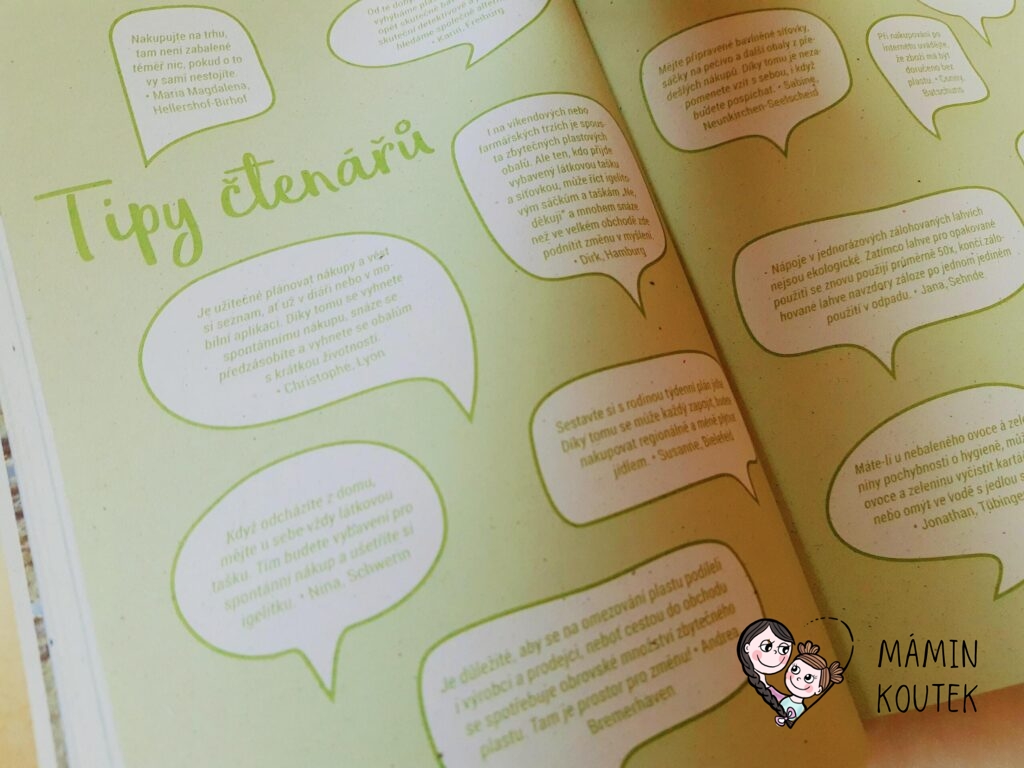 Nakupujte na trhu,
tam není zabalené
téměř nic, pokud o to
vy sami nestojíte.
• Maria Magdalena,
Hellershof-Birhof
Od té doby
vyhýbáme
opět skutečně
skuteční detektivové a
hledáme společně alterna
• Karin, Freiburg
Tipy čtenářů
I na víkendových nebo
farmářských trzích je spous-
ta zbytečných plastových
obalů. Ale ten, kdo přijde
vybavený látkovou taškou
a síťovkou, může říct igelito
vým sáčkům a taškám „Ne,
děkuji“ a mnohem snáze
než ve velkém obchodě zde
podnítit změnu v myšlení.
• Dirk, Hamburg
Je užitečné plánovat nákupy a vést
si seznam, ať už v diáři nebo v mo-
bilní aplikaci. Díky tomu se vyhnete
spontánnímu nákupu, snáze se
předzásobíte a vyhnete se obalům
s krátkou životností.
• Christophe, Lyon
Sestavte si s rodinou týdenní plán jídla.
Díky tomu se může každý zapojit,
nakupovat regionálně a méně plýtvat
jídlem. • Susanne, Bielefeld
Když odcházíte z domu,
mějte u sebe vždy látkovou
tašku. Tím budete vybavení pro
spontánní nákup a ušetříte si
igelitku. • Nina, Schwerin
Je důležité, aby se na omezování plastu podíleli
i výrobci a prodejci, neboť cestou do obchodu
se spotřebuje obrovské množství zbytečného
plastu. Tam je prostor pro změnu! • Andrea,
Bremerhaven
Mějte připravené bavlněné síťovky,
sáčky na pečivo a další obaly z pře-
dešlých nákupů. Díky tomu je neza-
pomenete vzít s sebou, i když
budete pospíchat. • Sabine,
Neunkirchen-Seelscheid
Při nakupování po
internetu uvádějte,
že zboží má být
doručeno bez
plastu. • Conny,
Batschuns
Nápoje v jednorázových zálohovaných lahvích
nejsou ekologické. Zatímco lahve pro opakované
použití se znovu použijí průměrně 50x, končí zálo-
hované lahve navzdory záloze po jednom jediném
použití v odpadu. • Jana, Sehnde
Máte-li u nebaleného ovoce a zele
niny pochybnosti o hygieně, můž
ovoce a zeleninu vyčistit kartáč
nebo omýt ve vodě s jedlou s
• Jonathan, Tübinge
MÁMIN
KOUTEK